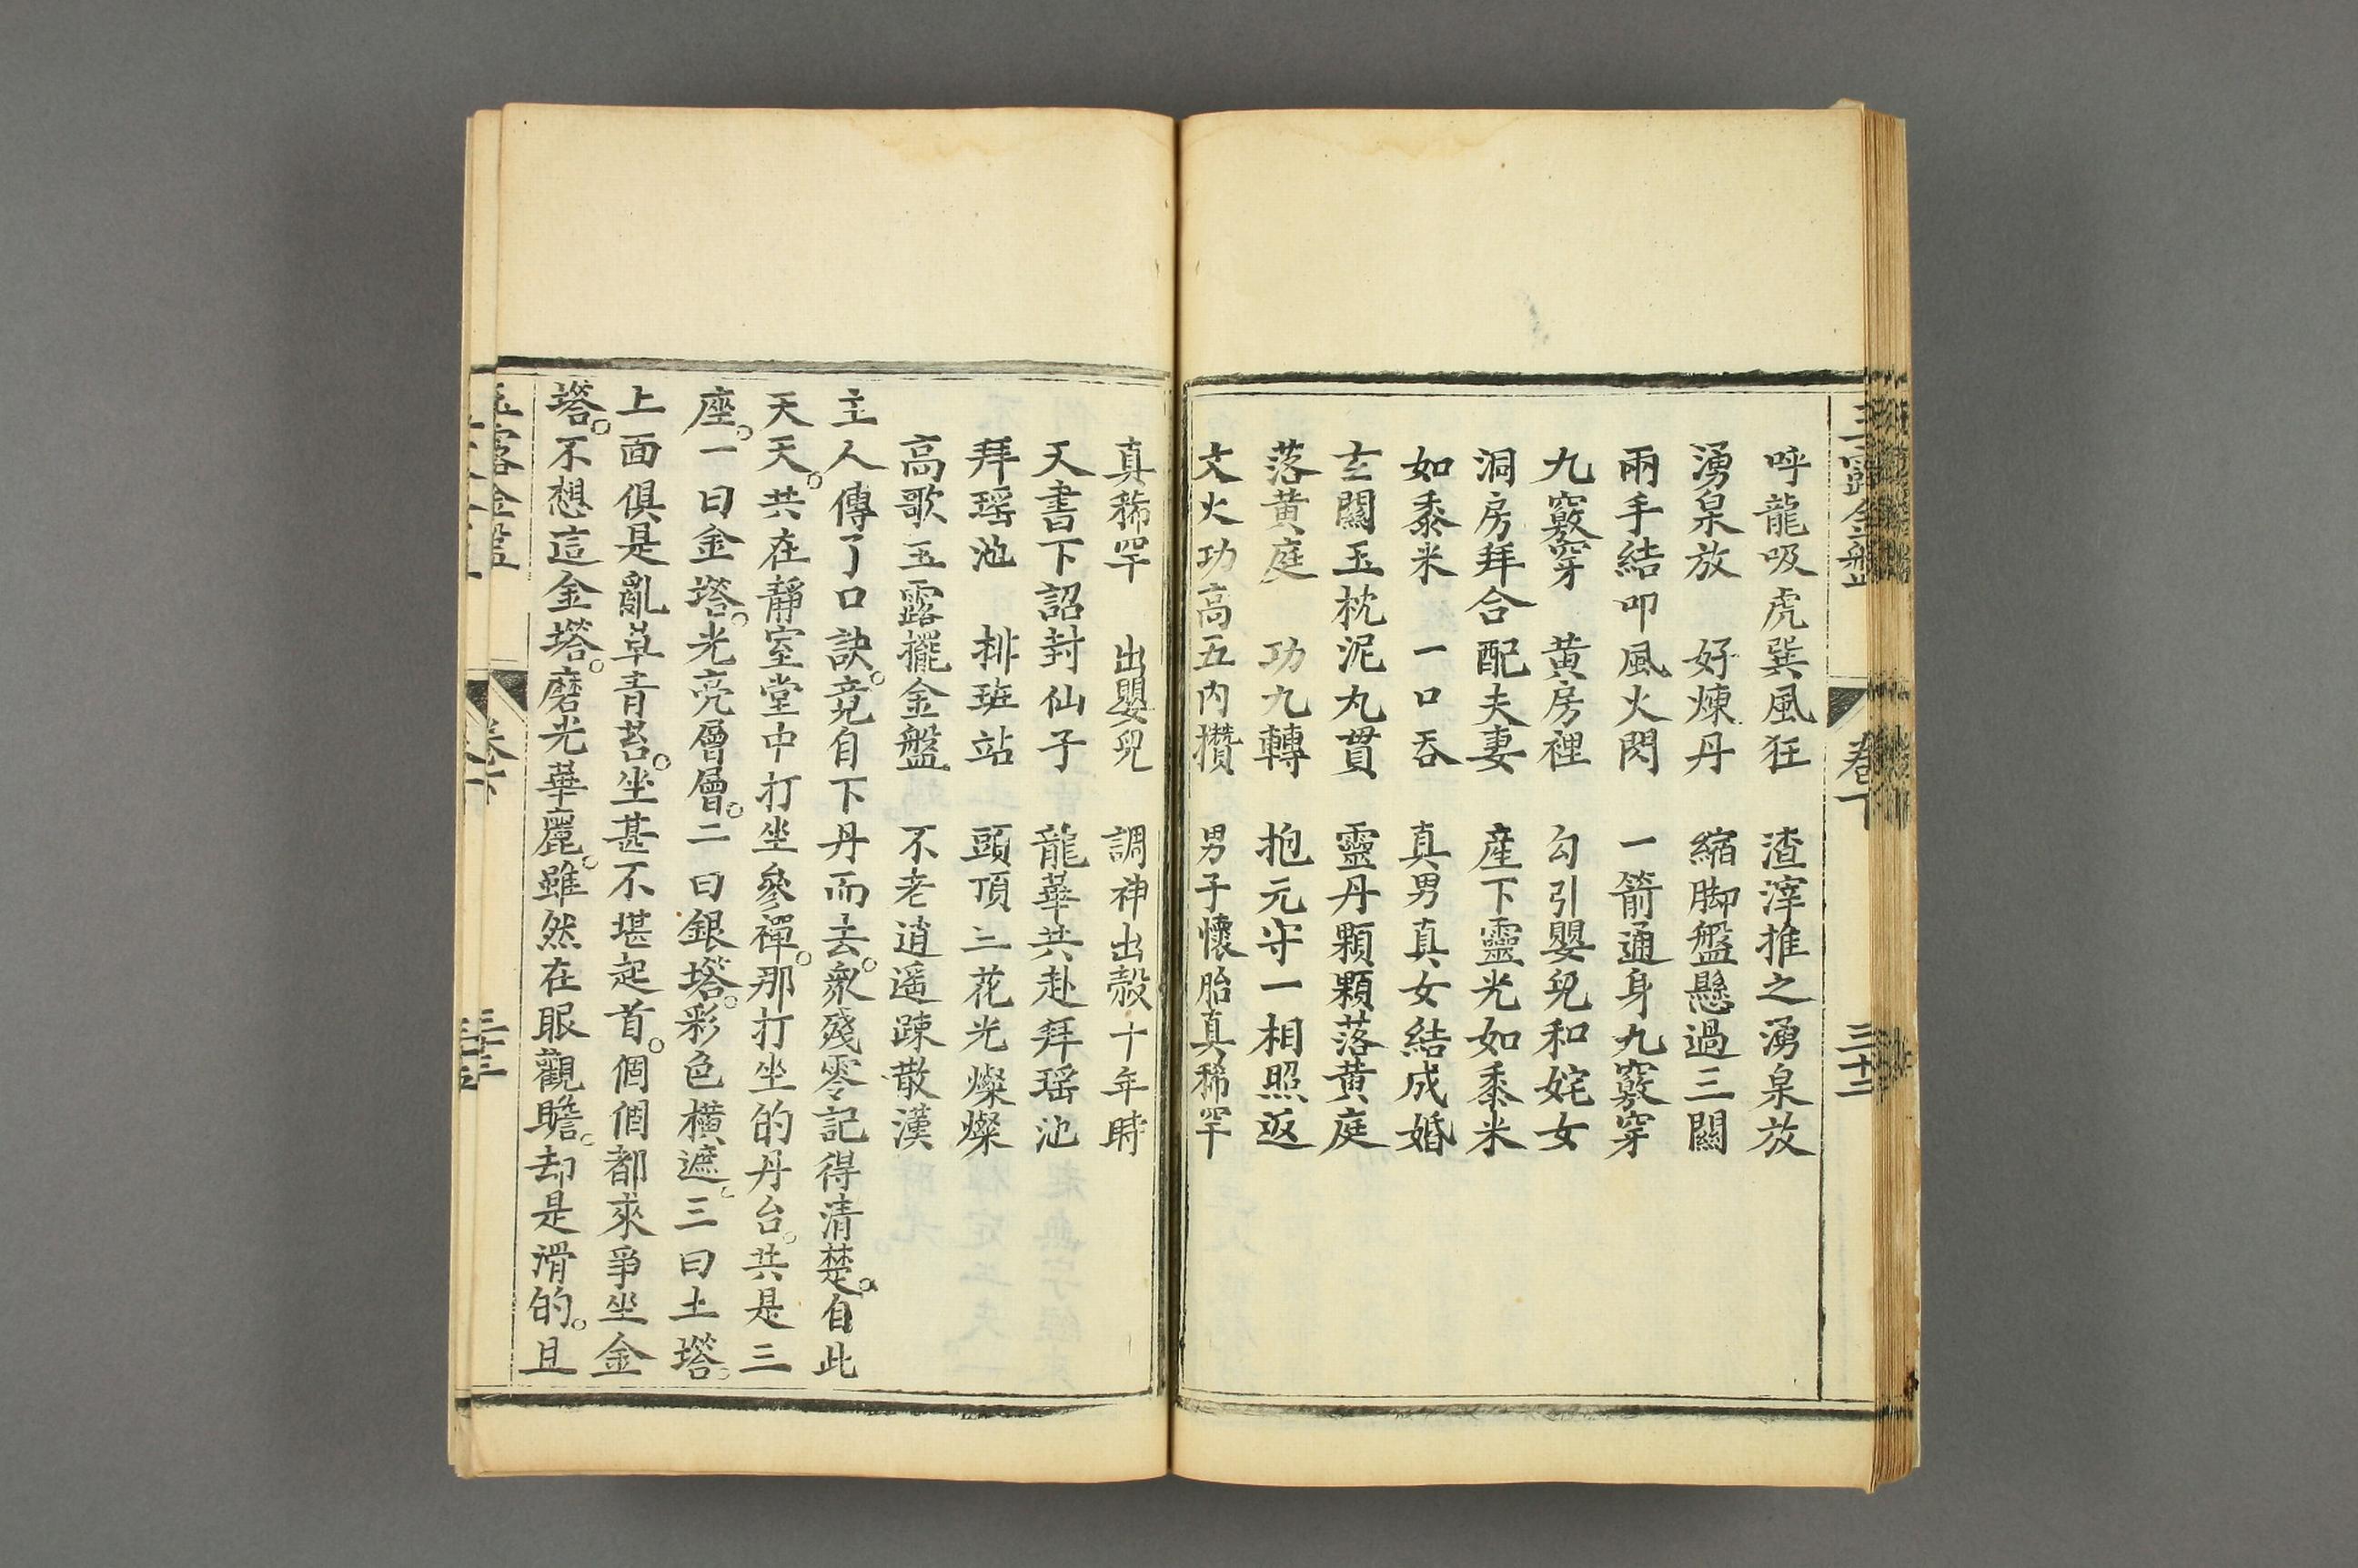 玉露金盤 卷下 三十二
呼龍吸虎巽風狂 渣滓推之湧泉放
湧泉放 好煉丹 縮脚盤懸過三關
兩手結叩風火閃 一箭通身九竅穿
九竅穿 黃房裡 勾引嬰兒和姹女
洞房拜合配夫妻 産下靈光如黍米
如黍米 一口吞 真男真女結成婚
玄關玉枕泥丸貫 靈丹顆顆落黃庭
落黃庭 功九轉 抱元守一相照返
文火功高五內攢 男子懷胎真稀罕
真稀罕 出嬰兒 調神出殼十年時
天書下詔封仙子 龍華共赴拜瑶池
拜瑶池 排班站 頭頂三花光燦燦
高歌玉露擺金盤 不老逍遥踈散漢
主人傳了口訣。竟自下丹而去。衆殘零記得清楚。自此
天天。共在靜室堂中打坐參禪。那打坐的丹台。共是三
座。一曰金塔。光亮層層。二曰銀塔。彩色橫遮。三曰土塔。
上面俱是亂草青苔。坐甚不堪起首。個個都來爭坐金
塔。不想這金塔。磨光華麗。雖然在眼觀瞻。却是滑的。且
玉露金盤 卷下 三十三